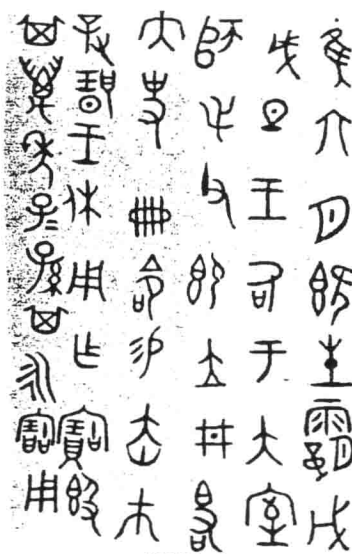 隹六月既生霸戊
戌旦王各于大室
師毛父即立井白右
內史冊命易赤巿
對揚王休用乍寶簋
其萬年子子孫其永寶用